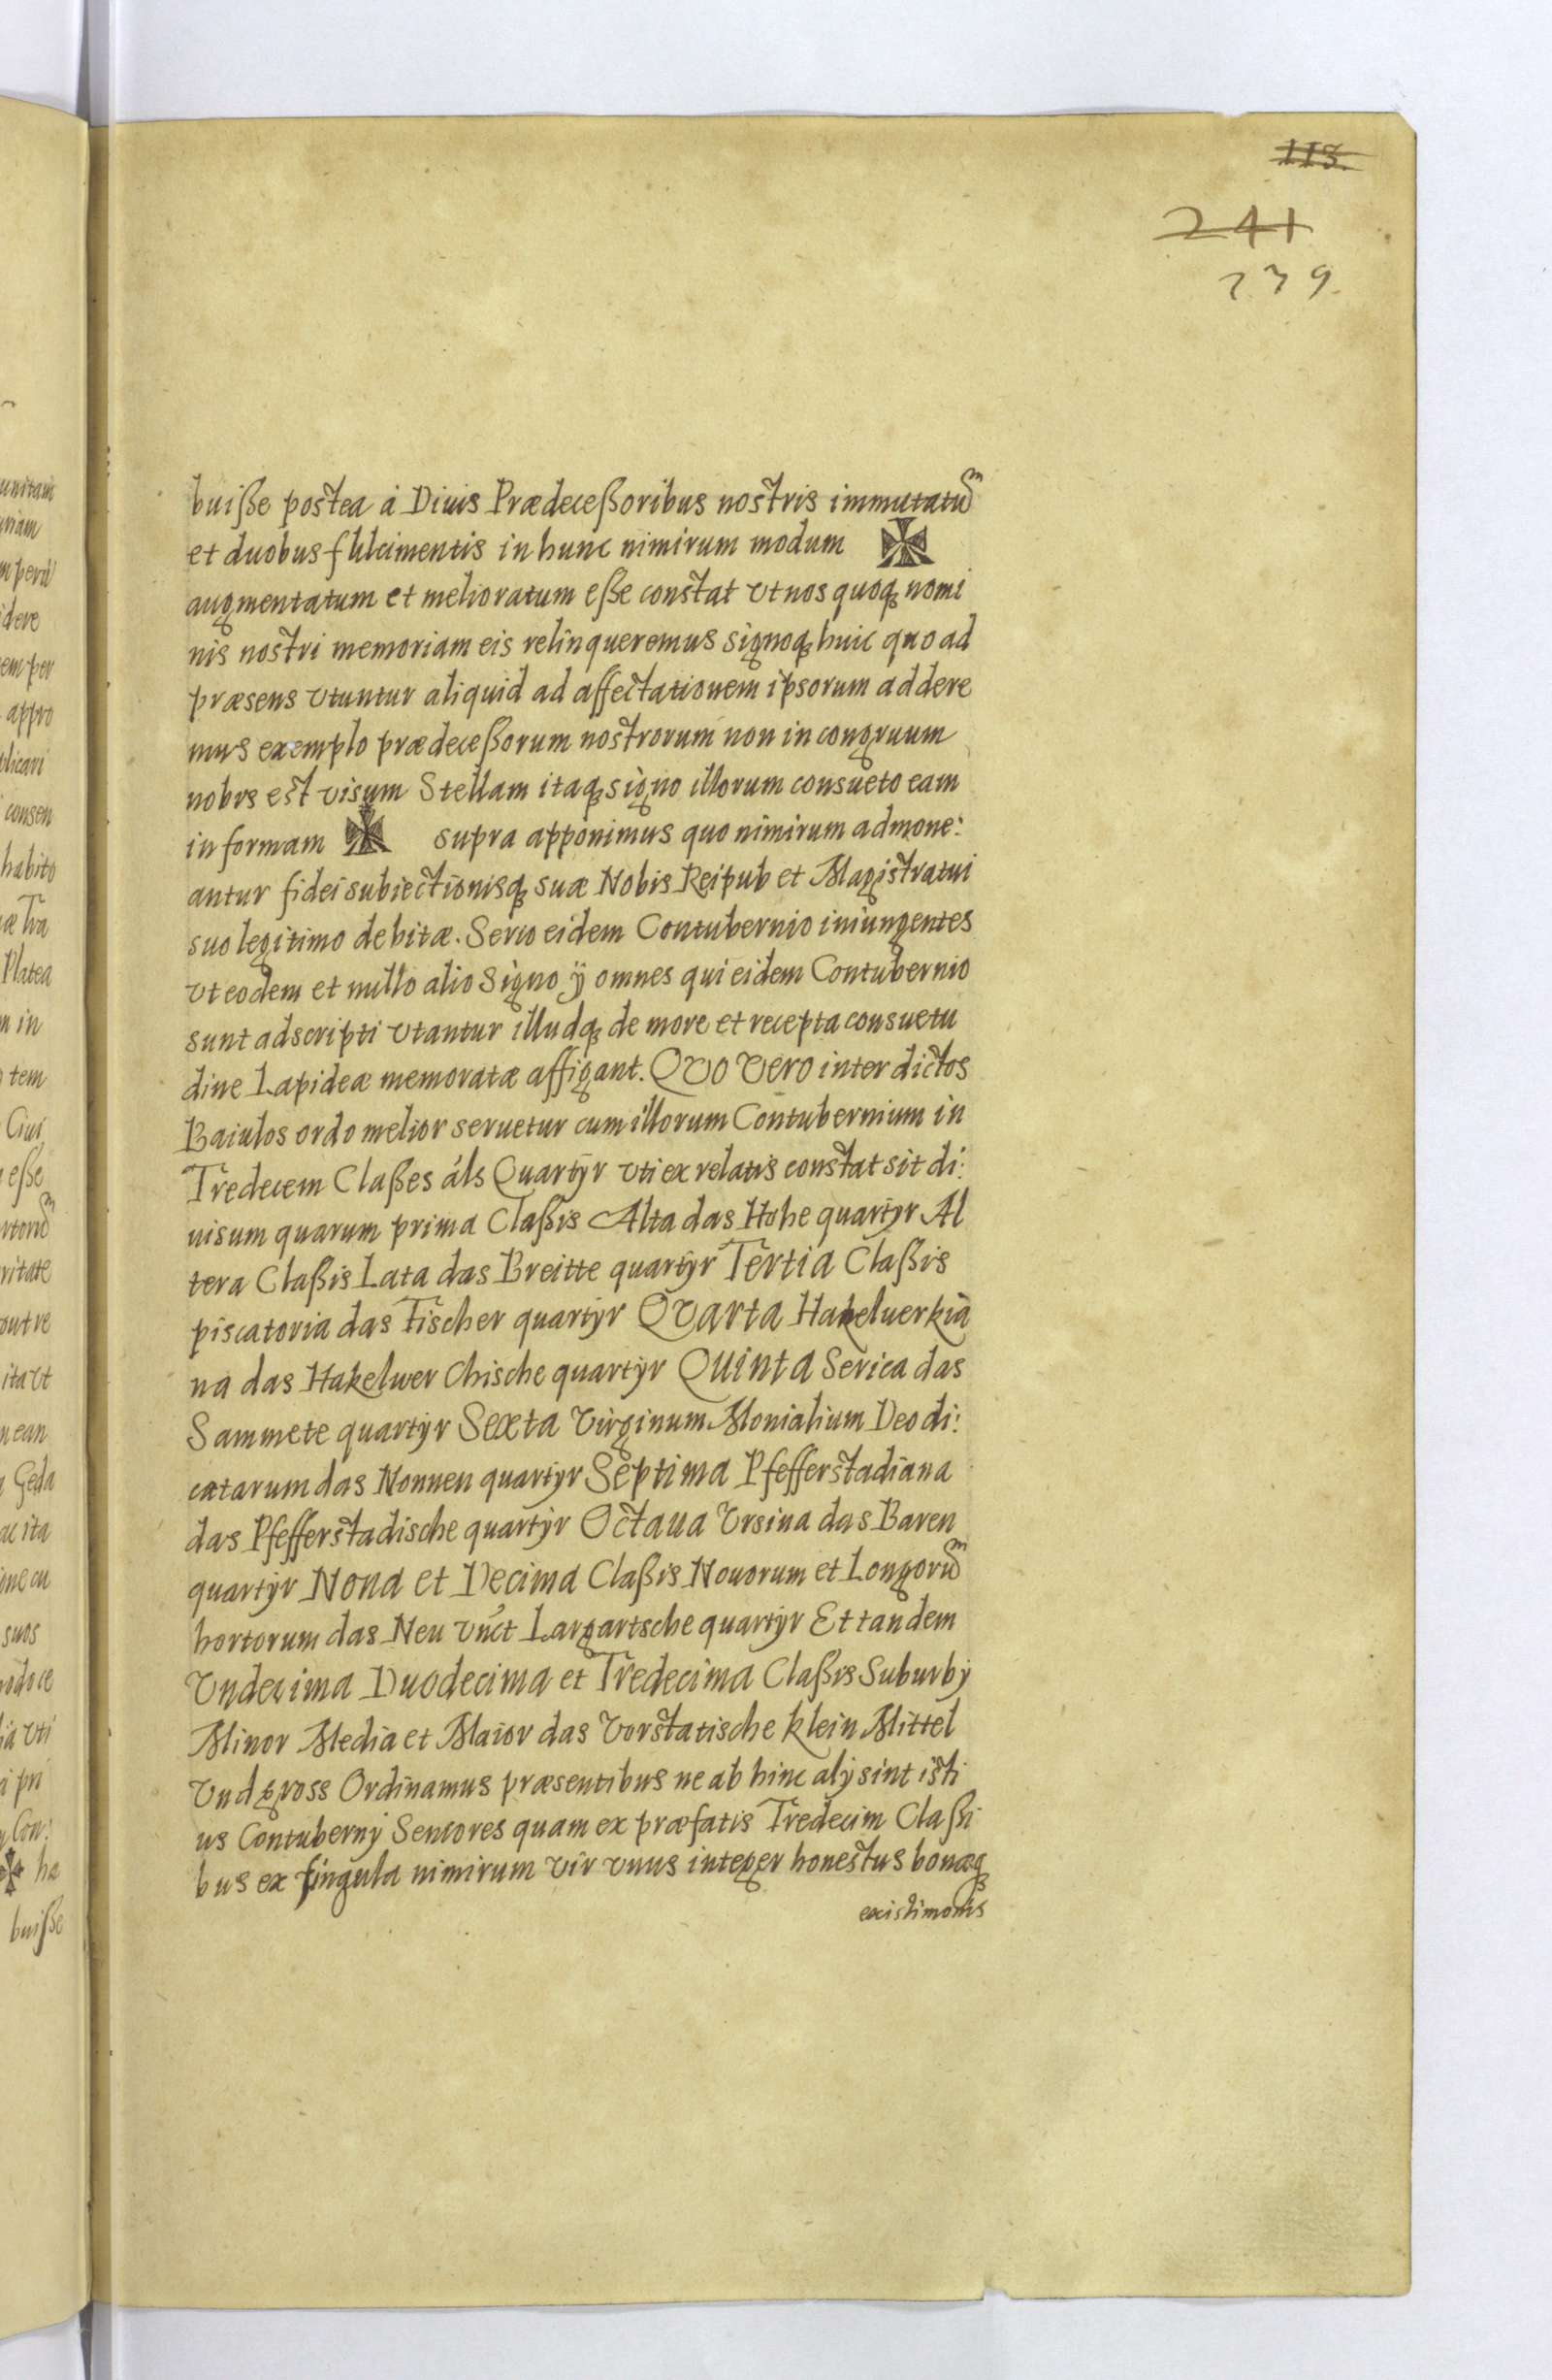 113.
241
239.
buiße postea á Diuis Prædeceßoribus nostris immutatũ
et duobus fulcimentis in hunc nimirum modum ✠
augmentatum et melioratum eße constat vt nos quoq nomi
nis nostri memoriam eis relinqueremus signoq huic quo ad
præsens vtuntur aliquid ad affectationem ipsorum addere
mus exemplo prædeceßorum nostrorum non in congruum
nobis est visum Stellam itaq signo illorum consueto eam
in formam ✠ supra apponimus quo nimirum admone:
antur fidei subiectionisq suæ Nobis Reipub et Magistratui
suo legitimo debitæ. Serio eidem Contubernio iniungentes
vt eodem et nullo alio Signo ÿ omnes qui eidem Contubernio
sunt adscripti vtantur illudq de more et recepta consuetu
dine Lapideæ memoratæ affigant. Qvo vero inter dictos
Baiulos ordo melior seruetur cum illorum Contubernium in
Tredecem Claßes áls Quartÿr vti ex relatis constat sit di:
uisum quarum prima Claßis Alta das Hohe quartÿr Al
tera Claßis Lata das Breitte quartÿr Tertia Claßis
piscatoria das Fischer quartÿr Qvarta Hakeluerkia
na das Hakelwer Chische quartÿr Quinta Serica das
Sammete quartÿr Sexta Virginum Monialium Deo di:
catarum das Nonnen quartÿr Septima Pfefferstadiana
das Pfefferstadische quartÿr Octaua Vrsina das Baren
quartÿr Nona et Decima Claßis Nouorum et Longorũ
hortorum das Neu vnct Largartsche quartÿr Et tandem
Vndecima Duodecima et Tredecima Claßis Suburbÿ
Minor Media et Maior das Vorstatische klein Mittel
Vnd gross Ordinamus præsentibus ne ab hinc alÿ sint isti
us Contubernÿ Seniores quam ex præfatis Tredecim Claßi
bus ex singula nimirum vir vnus integer honestus bonæq
existimonis